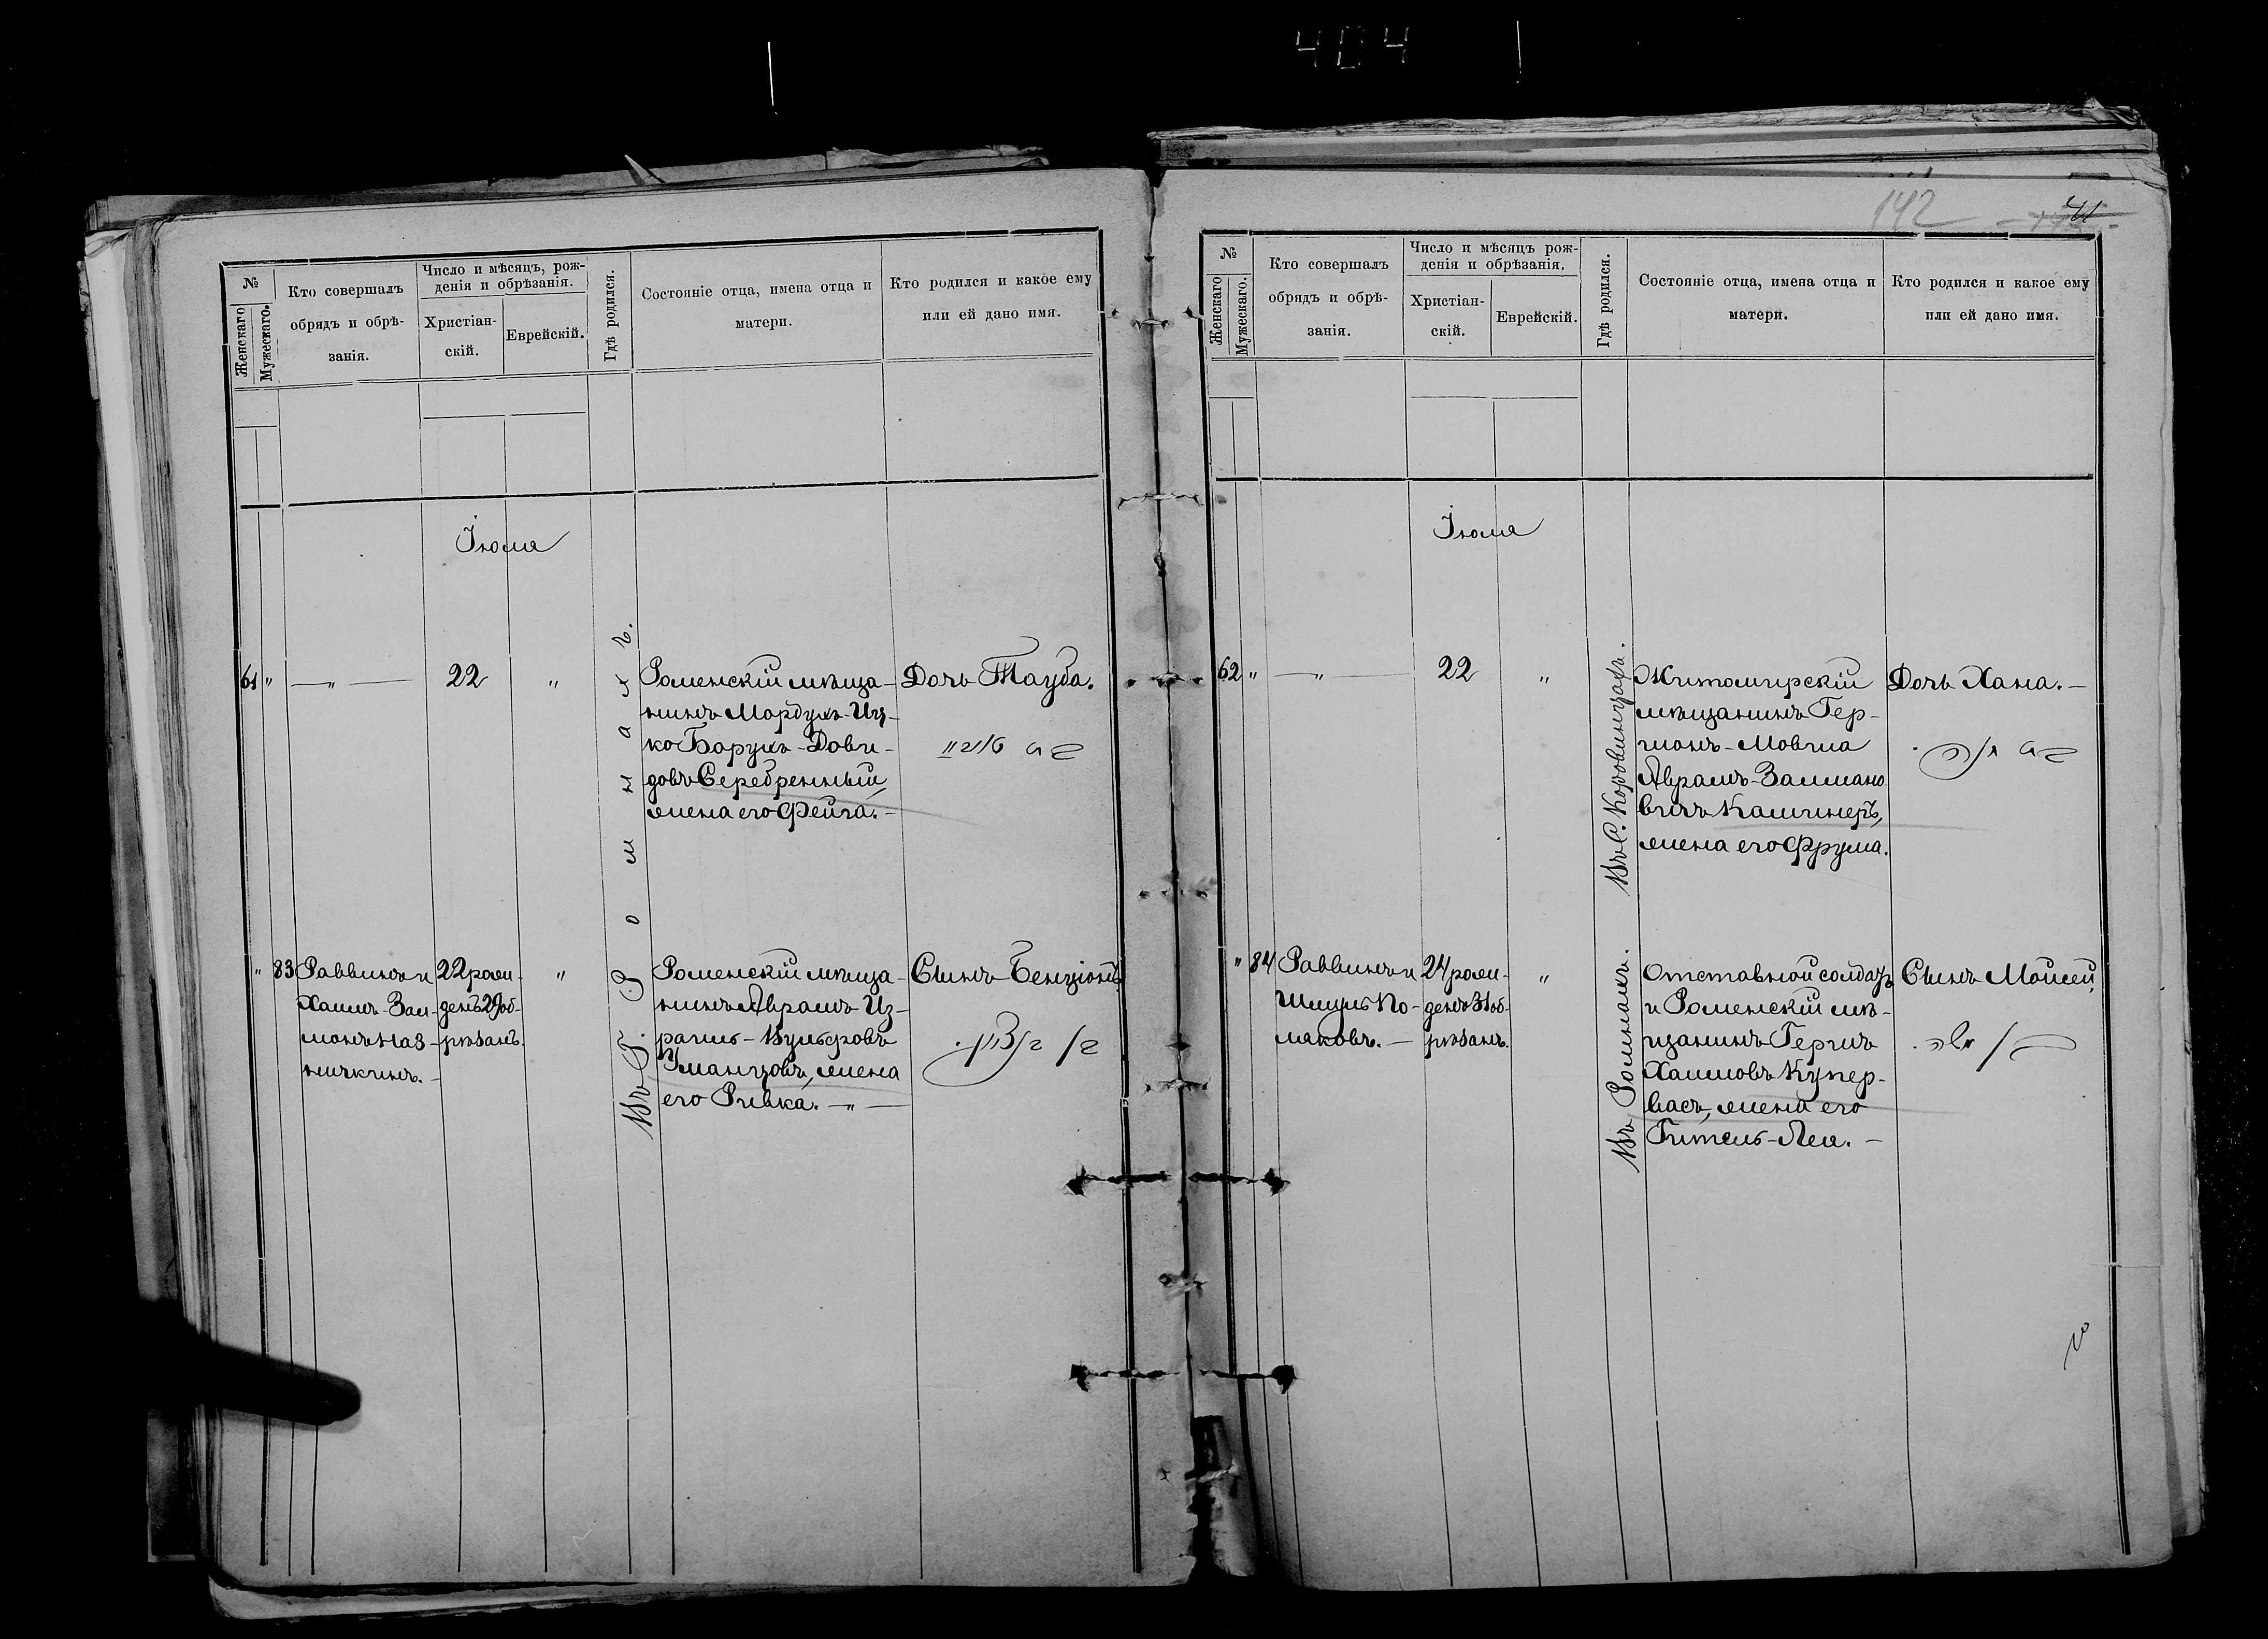 404
142
№
Женскаго
Мужескаго.
Кто совершалъ
обрядъ и обрѣ-
занія.
Число и мѣсяцъ, рож-
денія и обрѣзанія.
Христіан-
скій.
Еврейскій.
Гдѣ родился.
Состояніе отца, имена отца и
матери.
Кто родился и какое ему
или ей дано имя.
Іюля
61 " — " — 22 "
Въ Г. Ромнахъ.
Роменскій мѣща-
нинъ Мордухъ-Иц-
ко Борухъ-Дови-
довъ Серебренный,
жена его Фейга. —
Дочь Тауба.
בת טויבע
" 83
Раввинъ и
Хаимъ-Зал-
монъ Наз-
ничкинъ. —
22 рож-
денъ 29 об-
рѣзанъ.
"
Роменскій мѣща-
нинъ Аврамъ Из-
раиль-Вульфовъ
Уманцовъ, жена
его Ривка. — " —
Сынъ Бенціонъ.
בן בנציון.
№
Женскаго
Мужескаго.
Кто совершалъ
обрядъ и обрѣ-
занія.
Число и мѣсяцъ рож-
денія и обрѣзанія.
Христіан-
скій.
Еврейскій.
Гдѣ родился.
Состояніе отца, имена отца и
матери.
Кто родился и какое ему
или ей дано имя.
Іюля
62 " — " — 22 "
Въ С. Коровинцахъ.
Житомирскій
мѣщанинъ Гер-
шонъ-Мовша
Аврамъ-Залмано
вичъ Калинеръ,
жена его Фрума.
Дочь Хана. —
בת חנה.
" 84
Раввинъ и
Шмуль По-
ляковъ. —
24 рож-
денъ 31 об-
рѣзанъ.
"
Въ Ромнахъ.
Отставной солдатъ
и Роменскій мѣ-
щанинъ Гершъ
Хаимовъ Купер-
васъ, жена его
Гитель-Лея. —
Сынъ Мойсей,
בן משה.